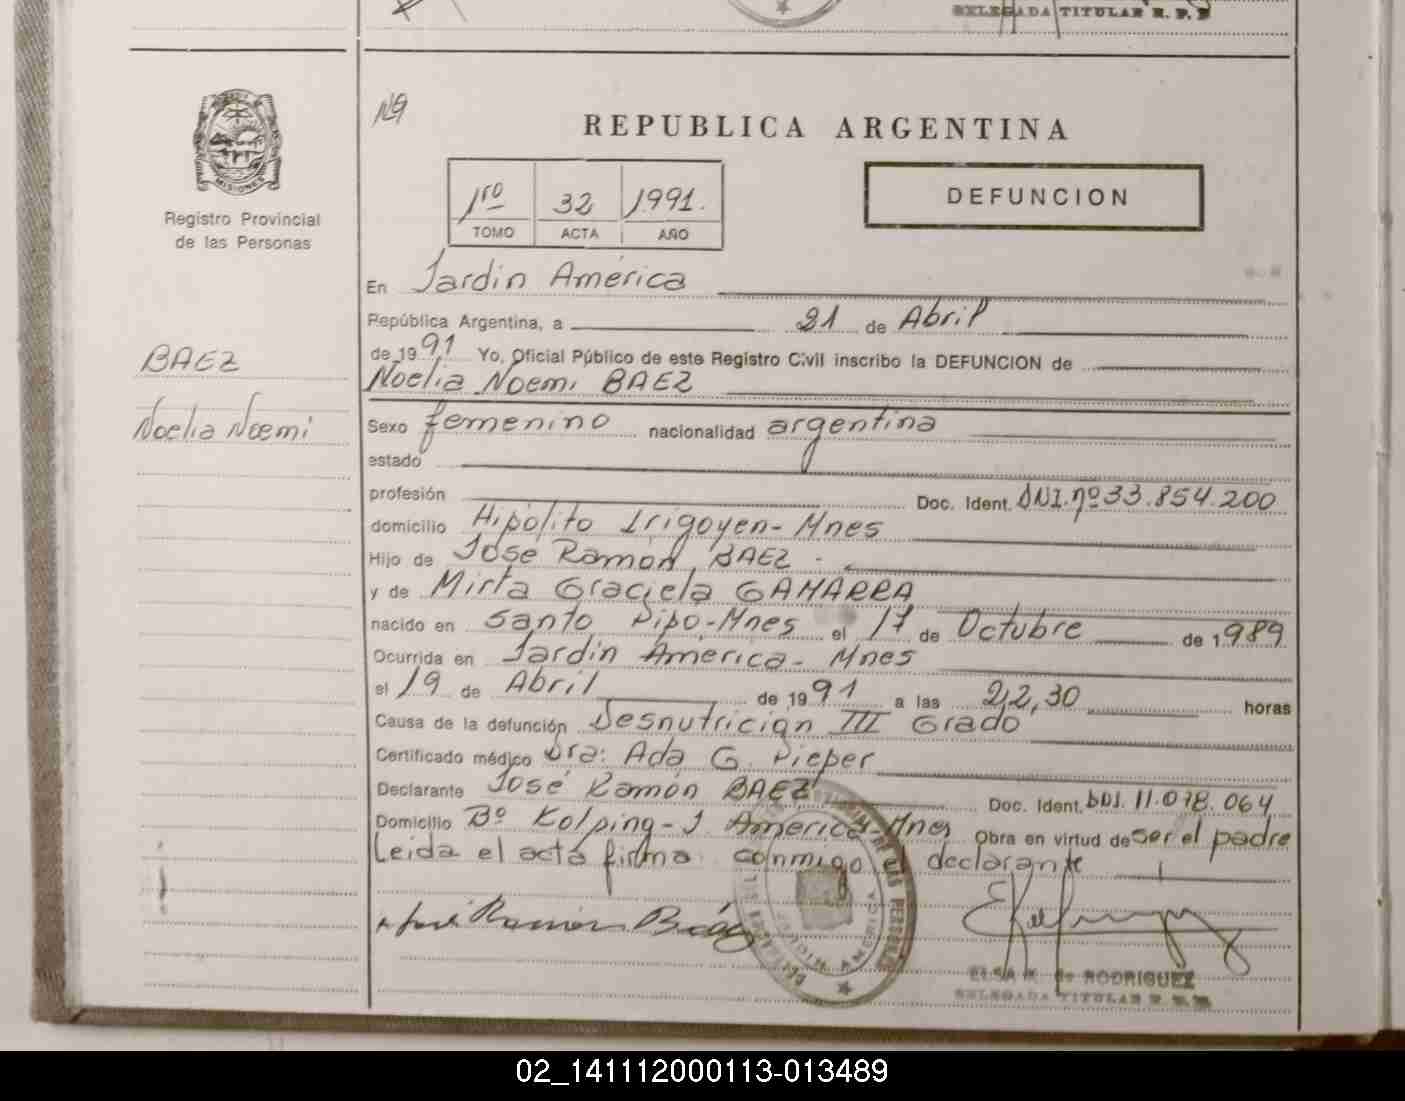 DELEGADA TITULAR R. P. P
Nº
REPUBLICA ARGENTINA
MISIONES
Registro Provincial
de las Personas
1ro 32 1991.
TOMO ACTA AÑO
DEFUNCION
En Jardin América
República Argentina, a 21 de Abril
de 1991 Yo, Oficial Público de este Registro Civil inscribo la DEFUNCION de
Noelia Noemi BAEZ
BAEZ
Noelia Noemi
Sexo femenino nacionalidad argentina
estado
profesión Doc. Ident. DNI.nº33.854.200
domicilio Hipólito Irigoyen-Mnes
Hijo de José Ramón BAEZ -
y de Mirta Graciela GAMARRA
nacido en Santo Pipó-Mnes el 17 de Octubre de 1989
Ocurrida en Jardin América- Mnes
el 19 de Abril de 1991 a las 22,30 horas
Causa de la defunción Desnutrición III Grado
Certificado médico Dra: Ada G. Pieper
Declarante José Ramón BAEZ Doc. Ident. DNI. 11.078.064
Domicilio Bº Kolping-J. América-Mnes Obra en virtud de ser el padre
Leida el acta firma conmigo el declarante
José Ramón Báez
JARDIN AMERICA
ELSA R. de RODRIGUEZ
DELEGADA TITULAR R. P. P.
02_141112000113-013489